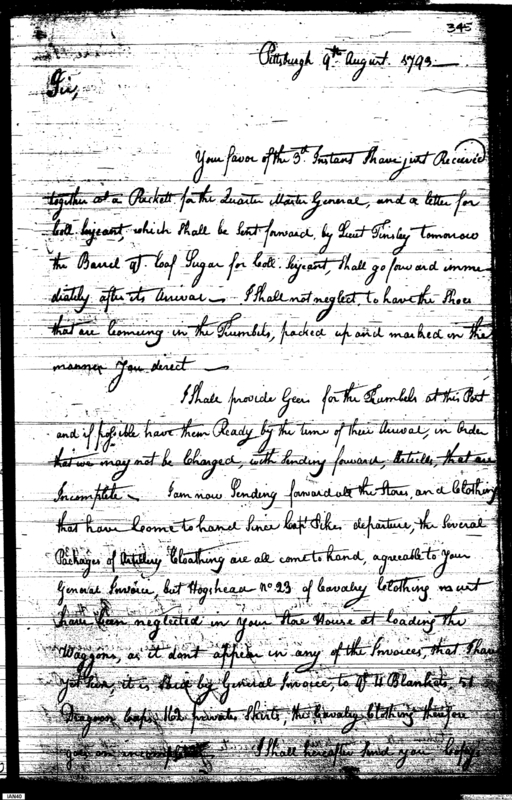 345
Pittsburgh 9th August 1793
Sir,
Your favor of the 3th Instant I have just Received
together wt a Packett for the Quarter Master General, and a letter for
Coll. Sejeant, which shall be sent forward by Lieut Tinsley tomorrow
the Barrel of Loaf Sugar for Coll. Sejeant, shall go forward imme
diately after its Arrival — I shall not neglect, to have the Shoes
that are Comeing in the Tumbels, packed up and marked in the
manner You direct —
I Shall provide Geers for the Tumbels at this Post
and if possible have them Ready by the time of their Arrival, in Order
that we may not be Charged, with Sending forward, Articles, that are
Incomplete — I am now Sending forward all the Stores, and Clothing
that have Come to hand Since Capt Pikes departure, the Several
Packages of Artillery Cloathing are all come to hand, agreeable to Your
General Invoice, but Hogshead No 23 of Cavalry Clothing must
have been neglected in Your Store House at loading the
Waggons, as it dont appear in any of the Invoices, that I have
yet seen, it is Said by General Invoice, to Qt 11 Blankets, 51
Dragoon Caps, 162 privates Shirts, the Cavalry Clothing therefore
goes on incomplete I Shall hereafter Send You Copys
IAN40